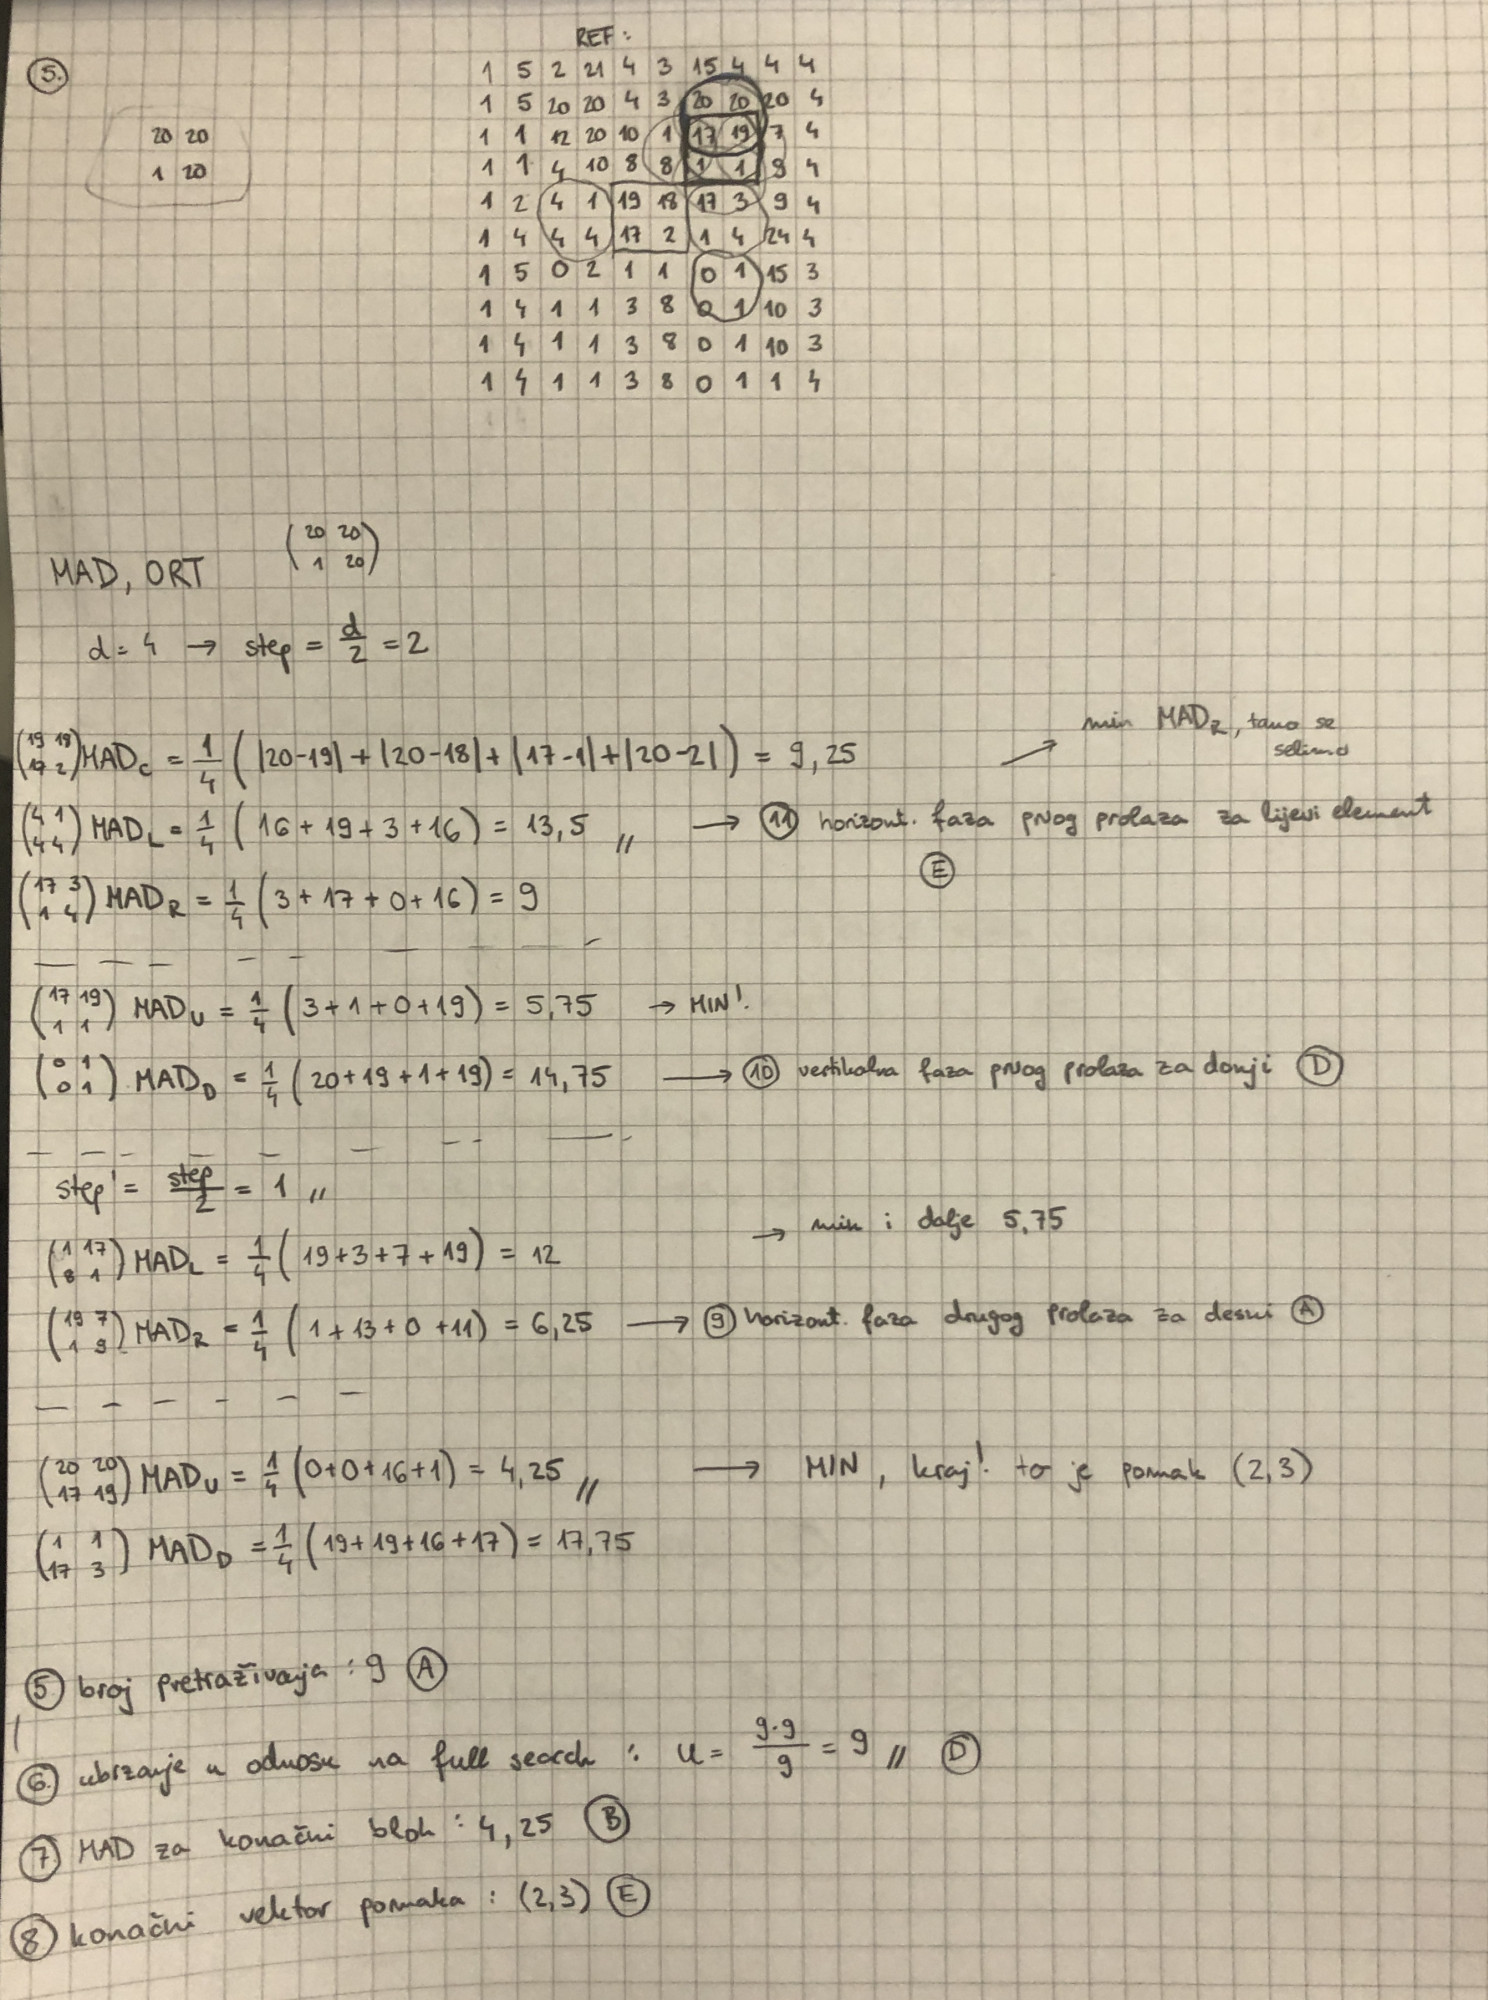 REF:
5.
1 5 2 21 4 3 15 4 4 4
1 5 20 20 4 3 20 20 20 4
20 20
1 1 12 20 10 1 17 19 7 4
1 20
1 1 4 10 8 8 1 1 9 4
1 2 4 1 19 18 17 3 9 4
1 4 4 4 17 2 1 4 24 4
1 5 0 2 1 1 0 1 15 3
1 4 1 1 3 8 0 1 10 3
1 4 1 1 3 8 0 1 10 3
1 4 1 1 3 8 0 1 1 4
MAD, ORT (20 20 / 1 20)
d = 4 → step = d/2 = 2
(19 18 / 17 2) MAD_C = 1/4 (|20-19| + |20-18| + |17-1| + |20-2|) = 9,25 → min MAD_R, tamo se selimo
(4 1 / 4 4) MAD_L = 1/4 (16 + 19 + 3 + 16) = 13,5 // → 11 horizont. faza prvog prolaza za lijevi element E
(17 3 / 1 4) MAD_R = 1/4 (3 + 17 + 0 + 16) = 9
(17 19 / 1 1) MAD_U = 1/4 (3 + 1 + 0 + 19) = 5,75 → MIN!
(0 1 / 0 1) MAD_D = 1/4 (20+19+1+19) = 14,75 → 10 vertikalna faza prvog prolaza za donji D
step' = step/2 = 1 //
→ min i dalje 5,75
(1 17 / 8 1) MAD_L = 1/4 (19+3+7+19) = 12
(19 7 / 1 9) MAD_R = 1/4 (1 + 13 + 0 + 11) = 6,25 → 9 horizont. faza drugog prolaza za desni A
(20 20 / 17 19) MAD_U = 1/4 (0+0+16+1) = 4,25 // → MIN, kraj! to je pomak (2,3)
(1 1 / 17 3) MAD_D = 1/4 (19+19+16+17) = 17,75
5 broj pretraživanja : 9 A
6. ubrzanje u odnosu na full search : u = 9·9/9 = 9 // D
7 MAD za konačni blok : 4,25 B
8 konačni vektor pomaka : (2,3) E